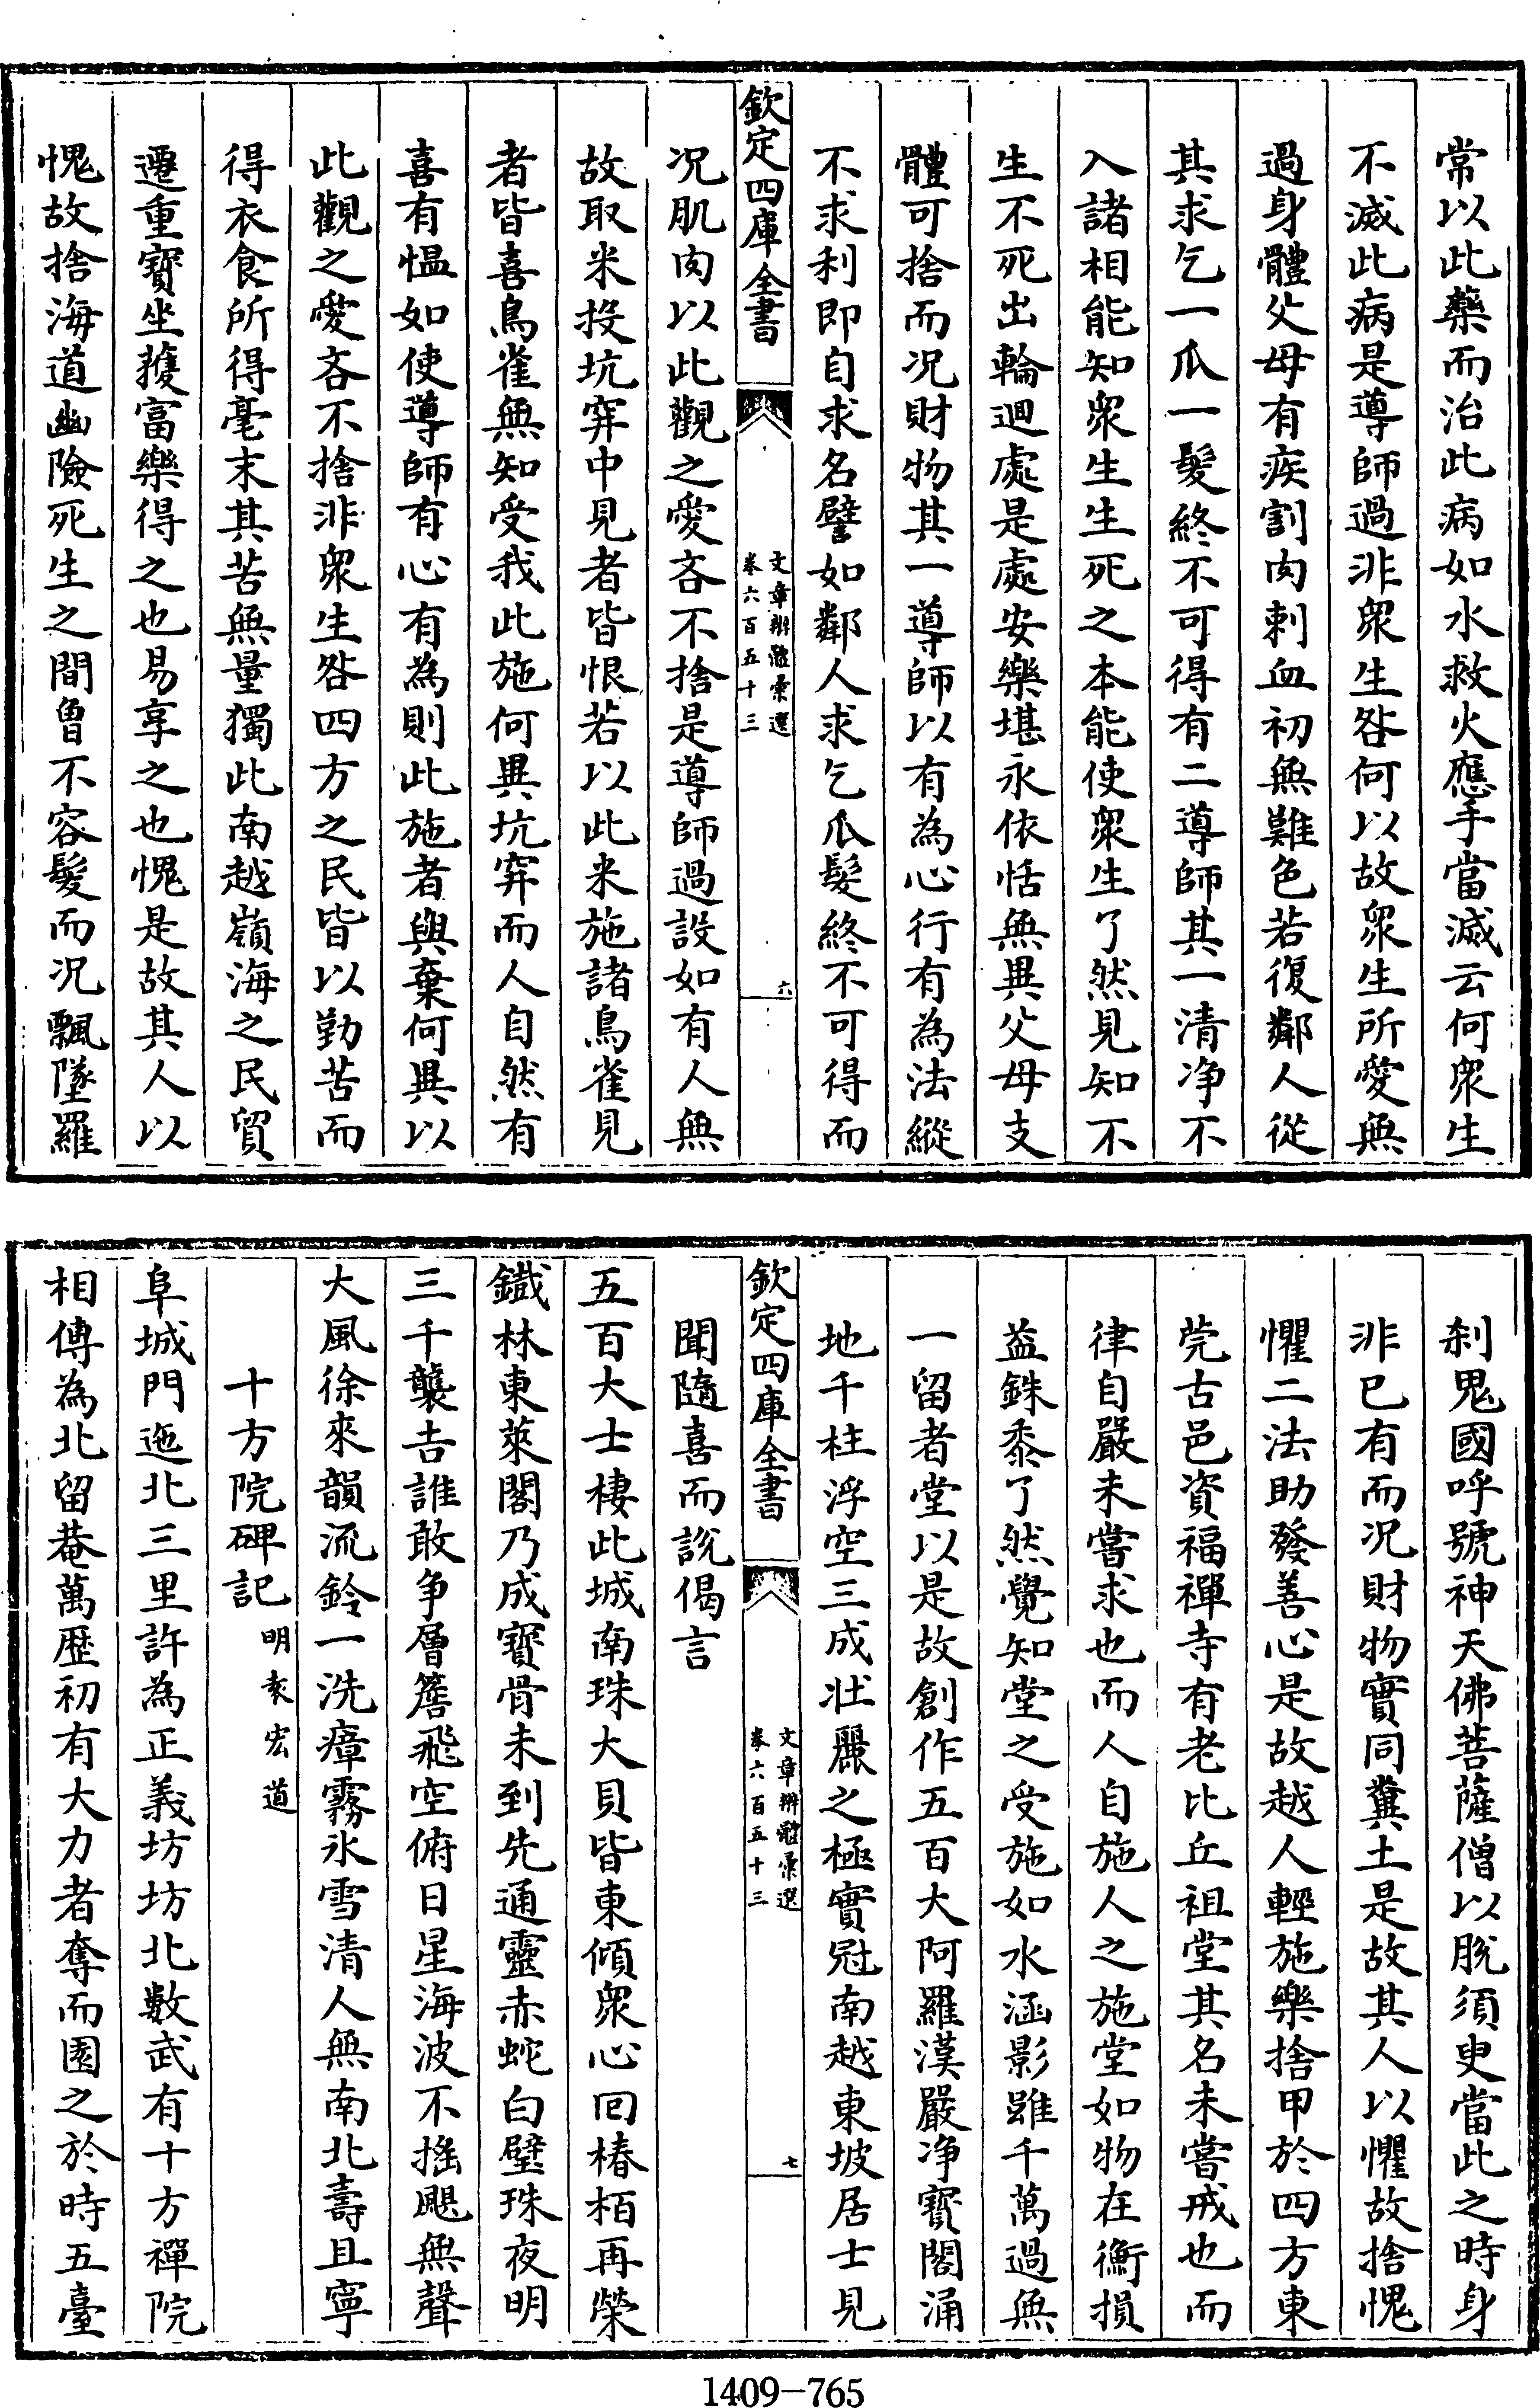 常以此藥而治此病如水救火應手當滅云何衆生
不滅此病是導師過非衆生咎何以故衆生所愛無
過身體父母有疾割肉刺血初無難色若復鄰人從
其求乞一爪一髮終不可得有二導師其一清净不
入諸相能知衆生生死之本能使衆生了然見知不
生不死出輪迴處是處安樂堪永依恬無異父母支
體可捨而况財物其一導師以有為心行有為法縱
不求利即自求名譬如鄰人求乞爪髮終不可得而
欽定四庫全書
文章辨體彙選
卷六百五十三
六
况肌肉以此觀之愛吝不捨是導師過設如有人無
故取米投坑穽中見者皆恨若以此米施諸鳥雀見
者皆喜鳥雀無知受我此施何異坑穽而人自然有
喜有愠如使導師有心有為則此施者與棄何異以
此觀之愛吝不捨非衆生咎四方之民皆以勤苦而
得衣食所得毫末其苦無量獨此南越嶺海之民貿
遷重寶坐獲富樂得之也易享之也愧是故其人以
愧故捨海道幽險死生之間曾不容髮而况飄墜羅
刹鬼國呼號神天佛菩薩僧以脫須臾當此之時身
非已有而况財物實同糞土是故其人以懼故捨愧
懼二法助發善心是故越人輕施樂捨甲於四方東
莞古邑資福禪寺有老比丘祖堂其名未嘗戒也而
律自嚴未嘗求也而人自施人之施堂如物在衡損
益銖黍了然覺知堂之受施如水涵影雖千萬過無
一留者堂以是故創作五百大阿羅漢嚴净寶閣涌
地千柱浮空三成壯麗之極實冠南越東坡居士見
欽定四庫全書
文章辨體彙選
卷六百五十三
七
聞隨喜而說偈言
五百大士棲此城南珠大貝皆東傾衆心回椿栢再榮
鐵林東萊閣乃成寶骨未到先通靈赤蛇白璧珠夜明
三千襲吉誰敢争層簷飛空俯日星海波不搖颶無聲
大風徐來韻流鈴一洗瘴霧冰雪清人無南北壽且寧
十方院碑記 明袁宏道
阜城門迤北三里許為正義坊坊北數武有十方禪院
相傳為北留菴萬歷初有大力者奪而園之於時五臺
1409-765